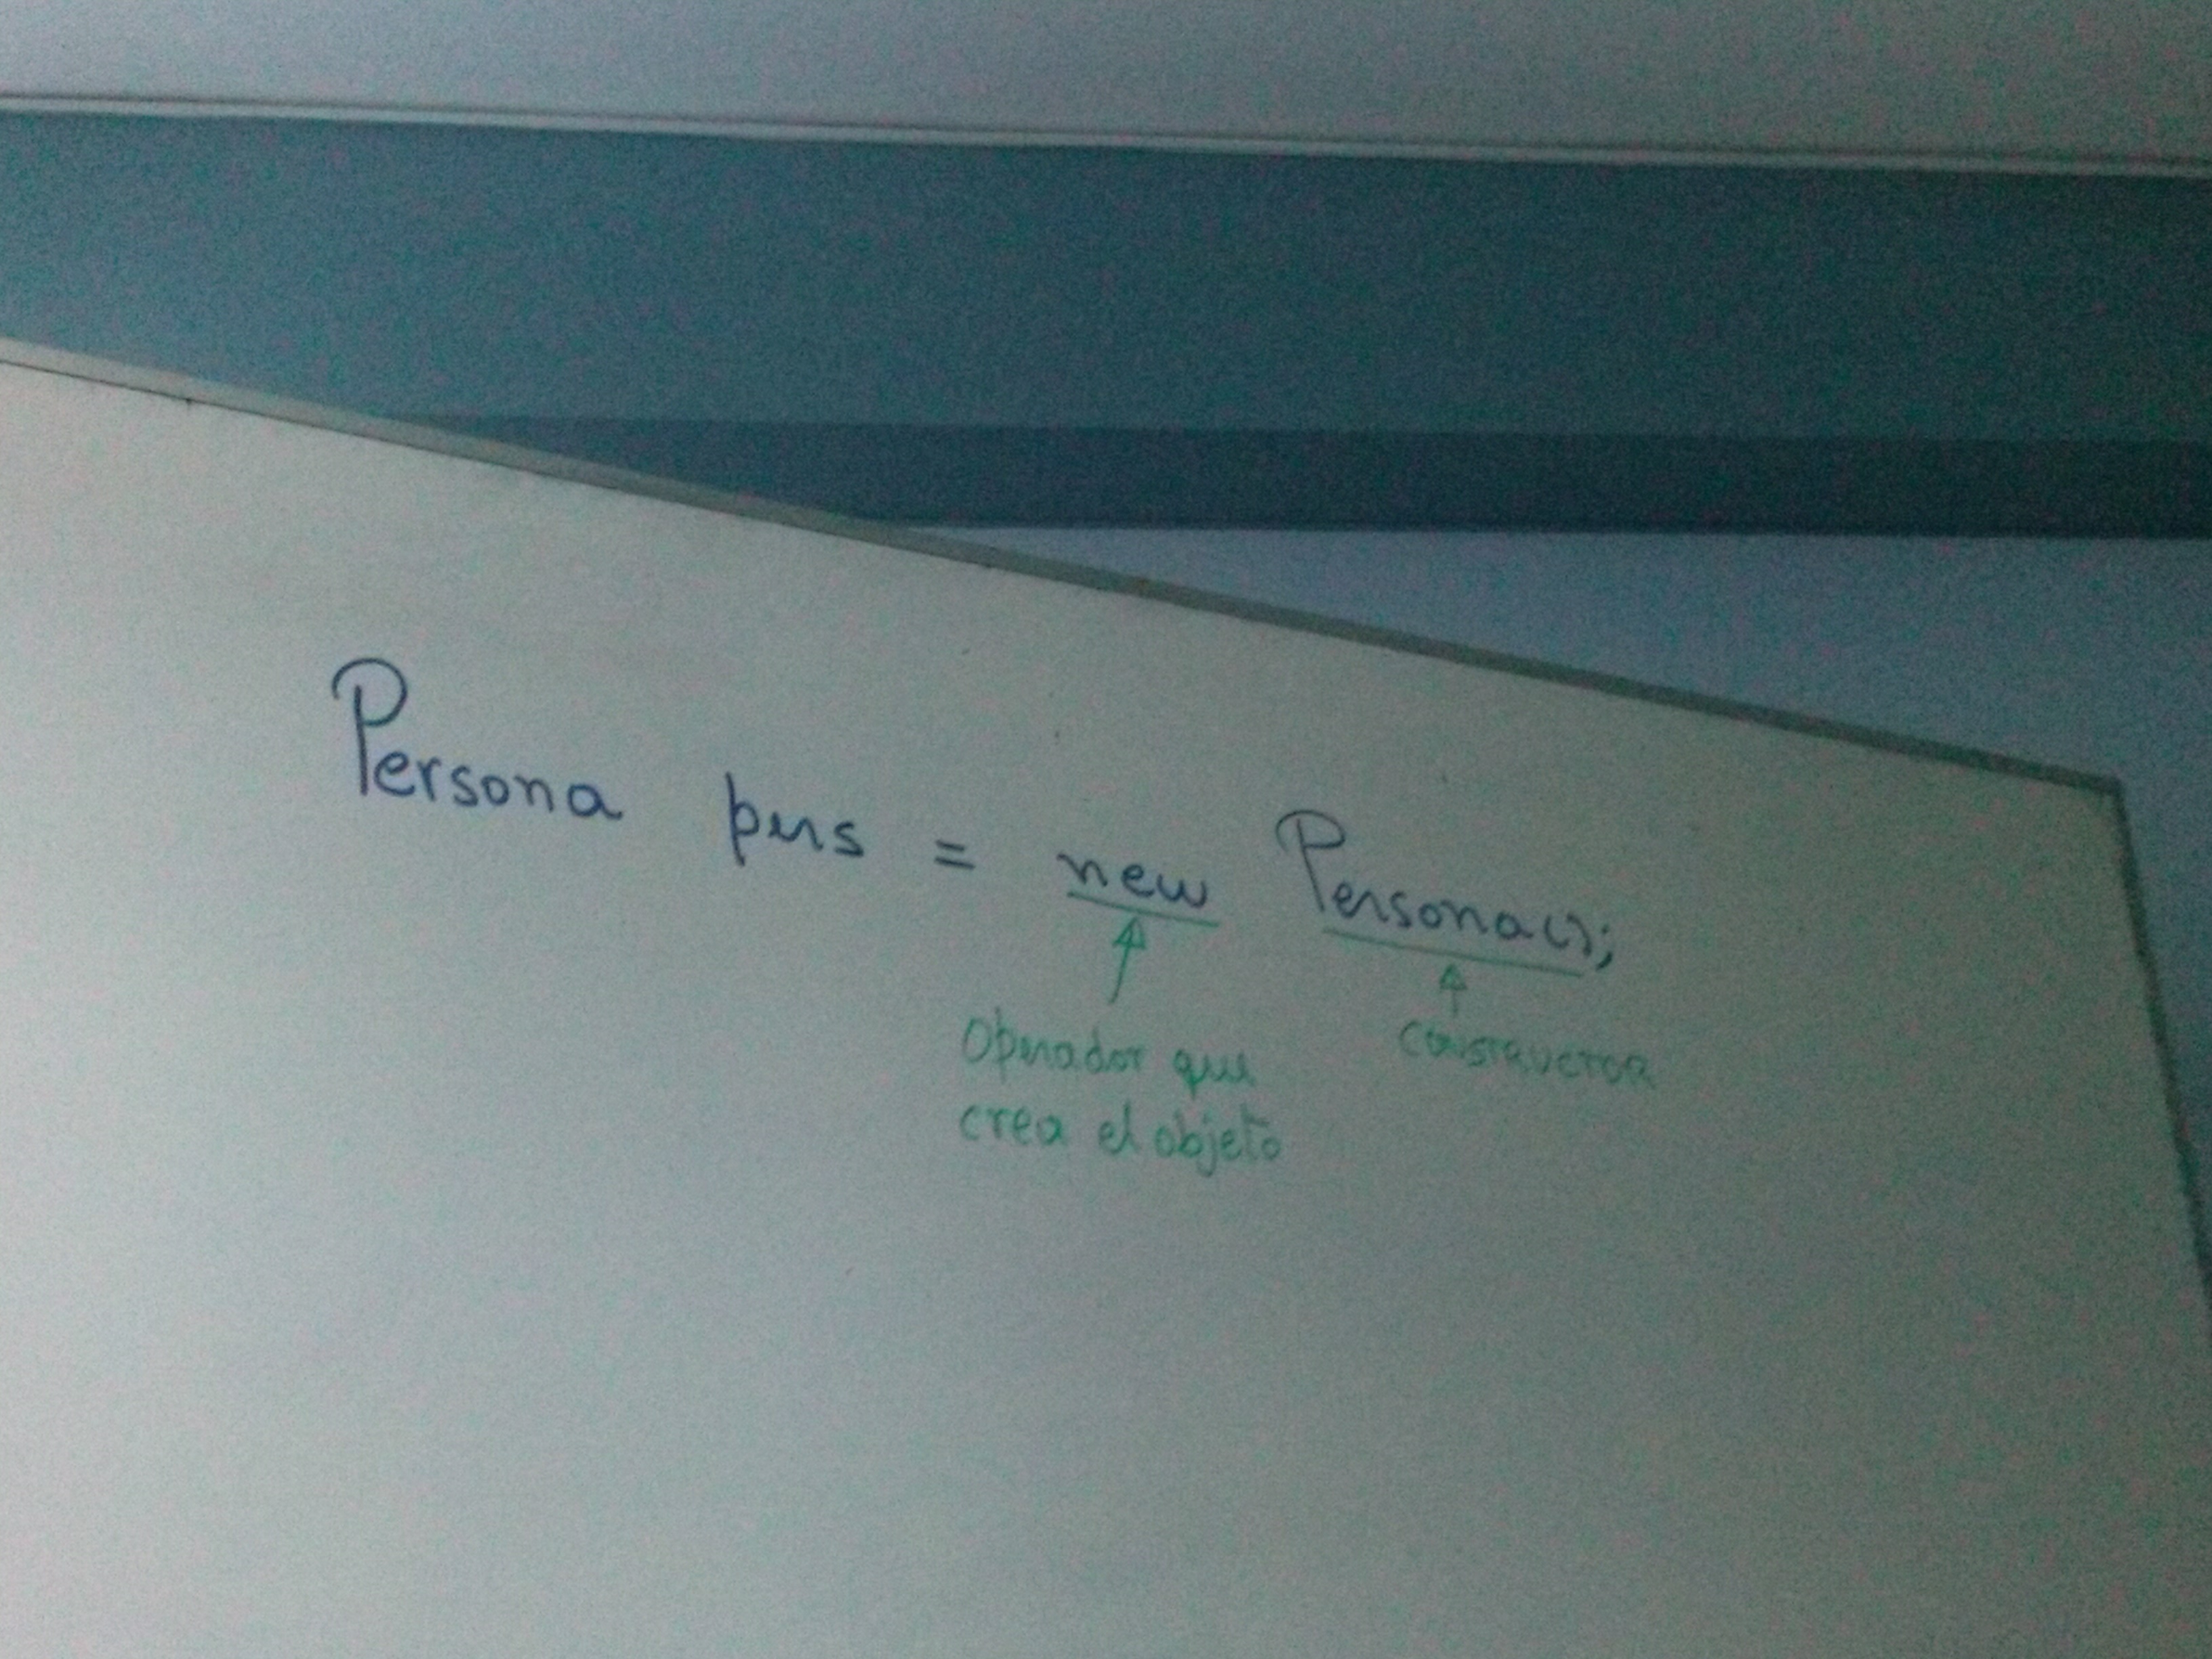 Persona pers = new Persona();
Operador que
crea el objeto
CONSTRUCTOR